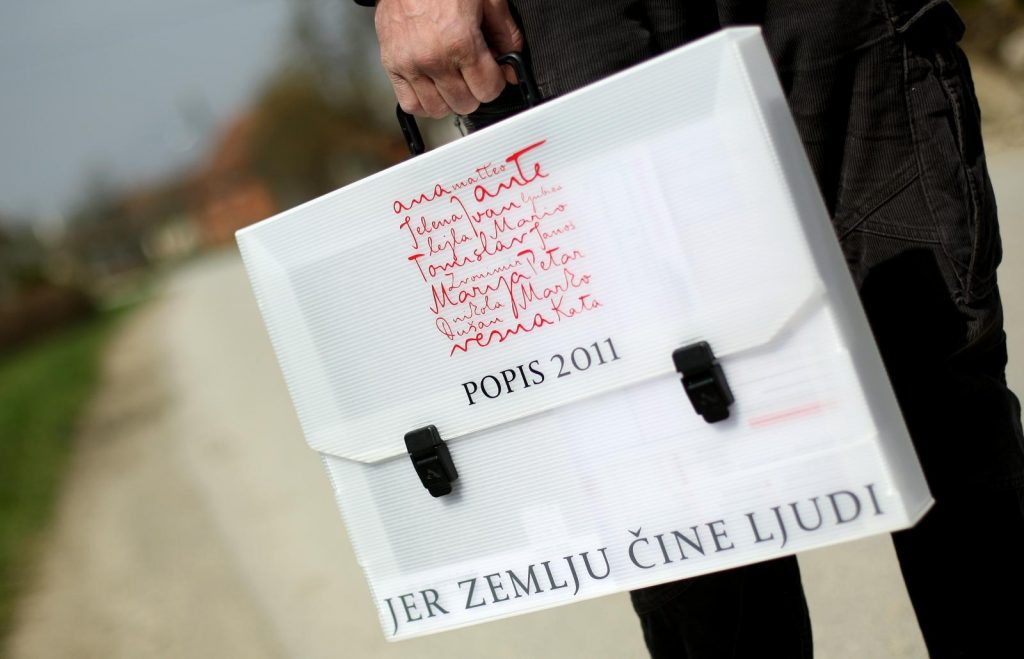 ana matteo ante
Jelena Ivan ljubica
lejla Mario
Tomislav Janoš
Zvonimir
Marija Petar
nikola Marko
Dušan
vesna Kata
POPIS 2011
JER ZEMLJU ČINE LJUDI